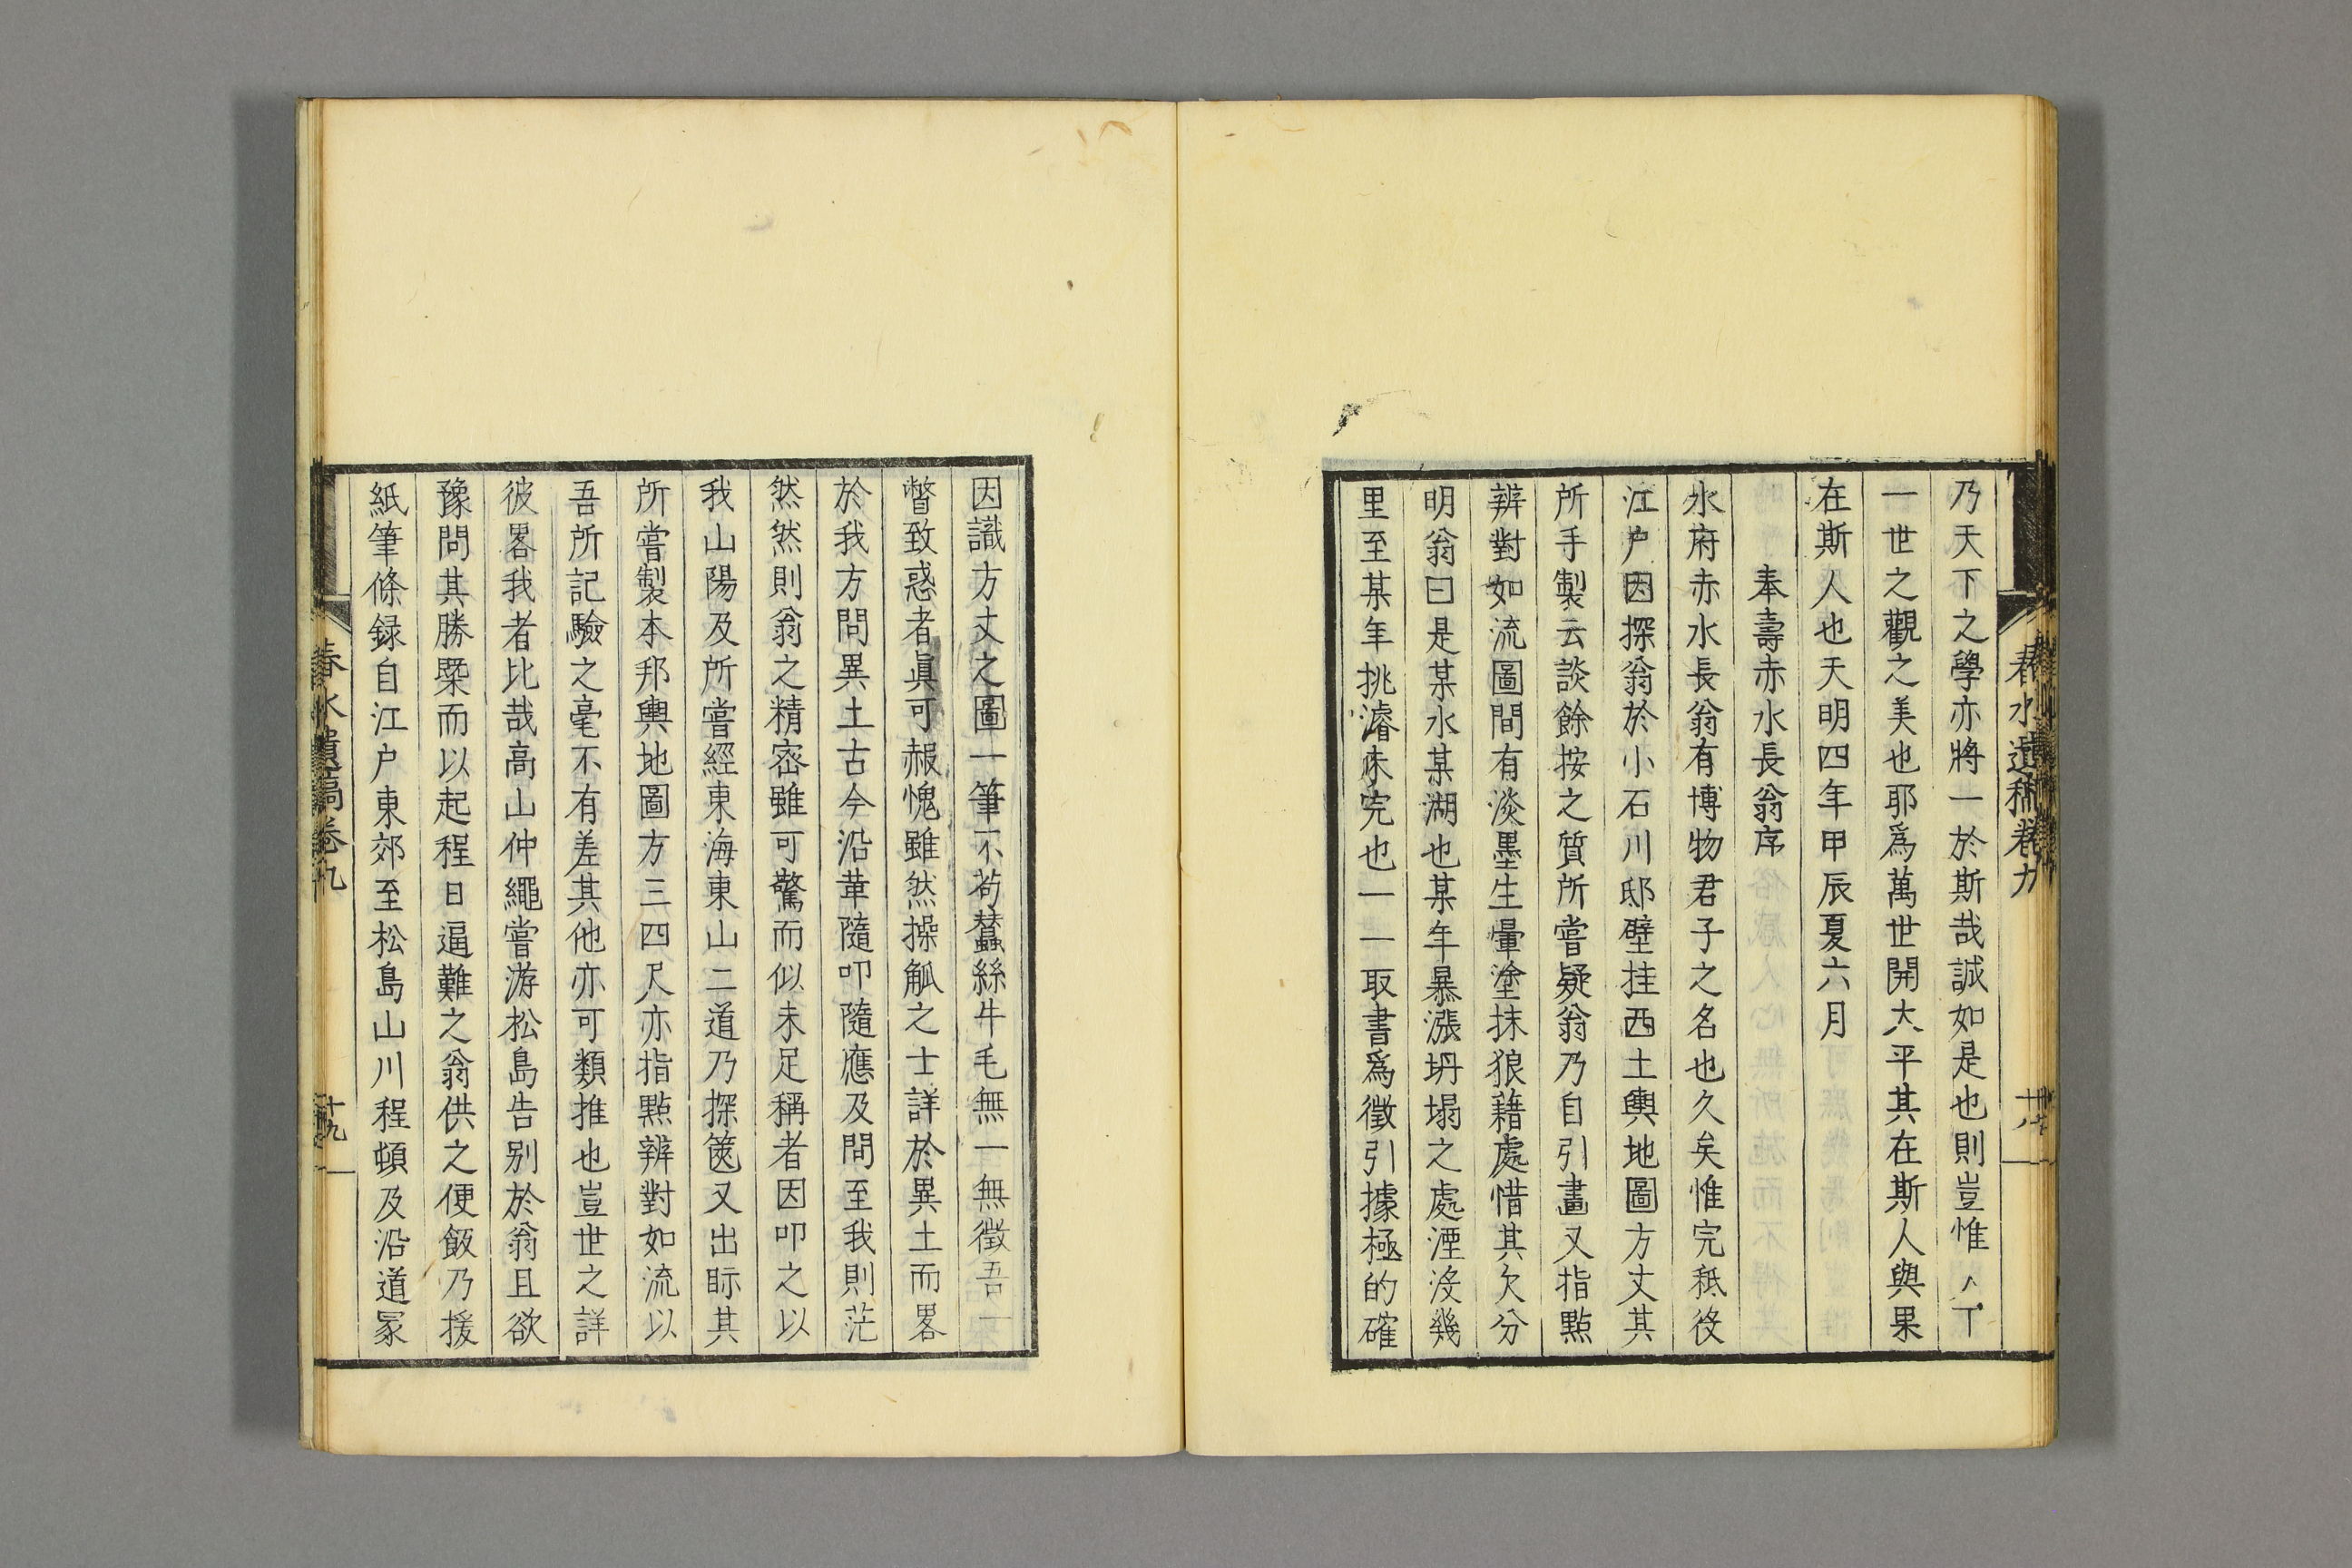 乃天下之學亦將一於斯哉誠如是也則豈惟
一世之觀之美也耶爲萬世開大平其在斯人與果
在斯人也天明四年甲辰夏六月
奉壽赤水長翁序
水府赤水長翁有博物君子之名也久矣惟完秪役
江户因探翁於小石川邸壁挂西土輿地圖方丈其
所手製云談餘按之質所嘗疑翁乃自引畫又指點
辨對如流圖間有淡墨生暈塗抹狼藉處惜其欠分
明翁曰是某水某湖也某年暴漲坍塌之處湮沒幾
里至某年挑濬未完也一一取書爲徵引據極的確
春水遺稿卷九
十八
因識方丈之圖一筆不苟蠶絲牛毛無一無徵吾一
瞥致惑者眞可赧愧雖然操觚之士詳於異土而畧
於我方問異土古今沿革隨叩隨應及問至我則茫
然然則翁之精宻雖可驚而似未足稱者因叩之以
我山陽及所嘗經東海東山二道乃探篋又出眎其
所嘗製本邦輿地圖方三四尺亦指點辨對如流以
吾所記驗之毫不有差其他亦可類推也豈世之詳
彼畧我者比哉高山仲繩嘗游松島告别於翁且欲
豫問其勝槩而以起程日逼難之翁供之便飯乃援
紙筆條録自江户東郊至松島山川程頓及沿道冢
春水遺稿卷九
十九